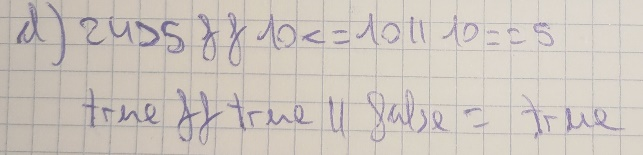 d) 24>5 && 10<=10 || 10==5
true && true || false = true